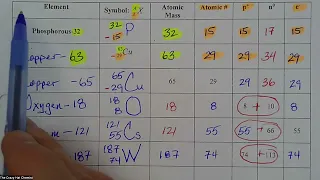 Element Symbol: A Z X Atomic Mass Atomic # p⁺ n° e⁻
Phosphorous-32 32 -15 P 32 15 15 17 15
opper-63 63 -29 Cu 63 29 29 34 29
opper -65 65 -29 Cu 65 29 29 36 29
Oxygen-18 18 8 O 18 8 8 + 10 8
m-121 121 55 Cs 121 55 55 + 66 55
187 187 74 W 187 74 74 + 113 74
The Crazy Hat Chemist